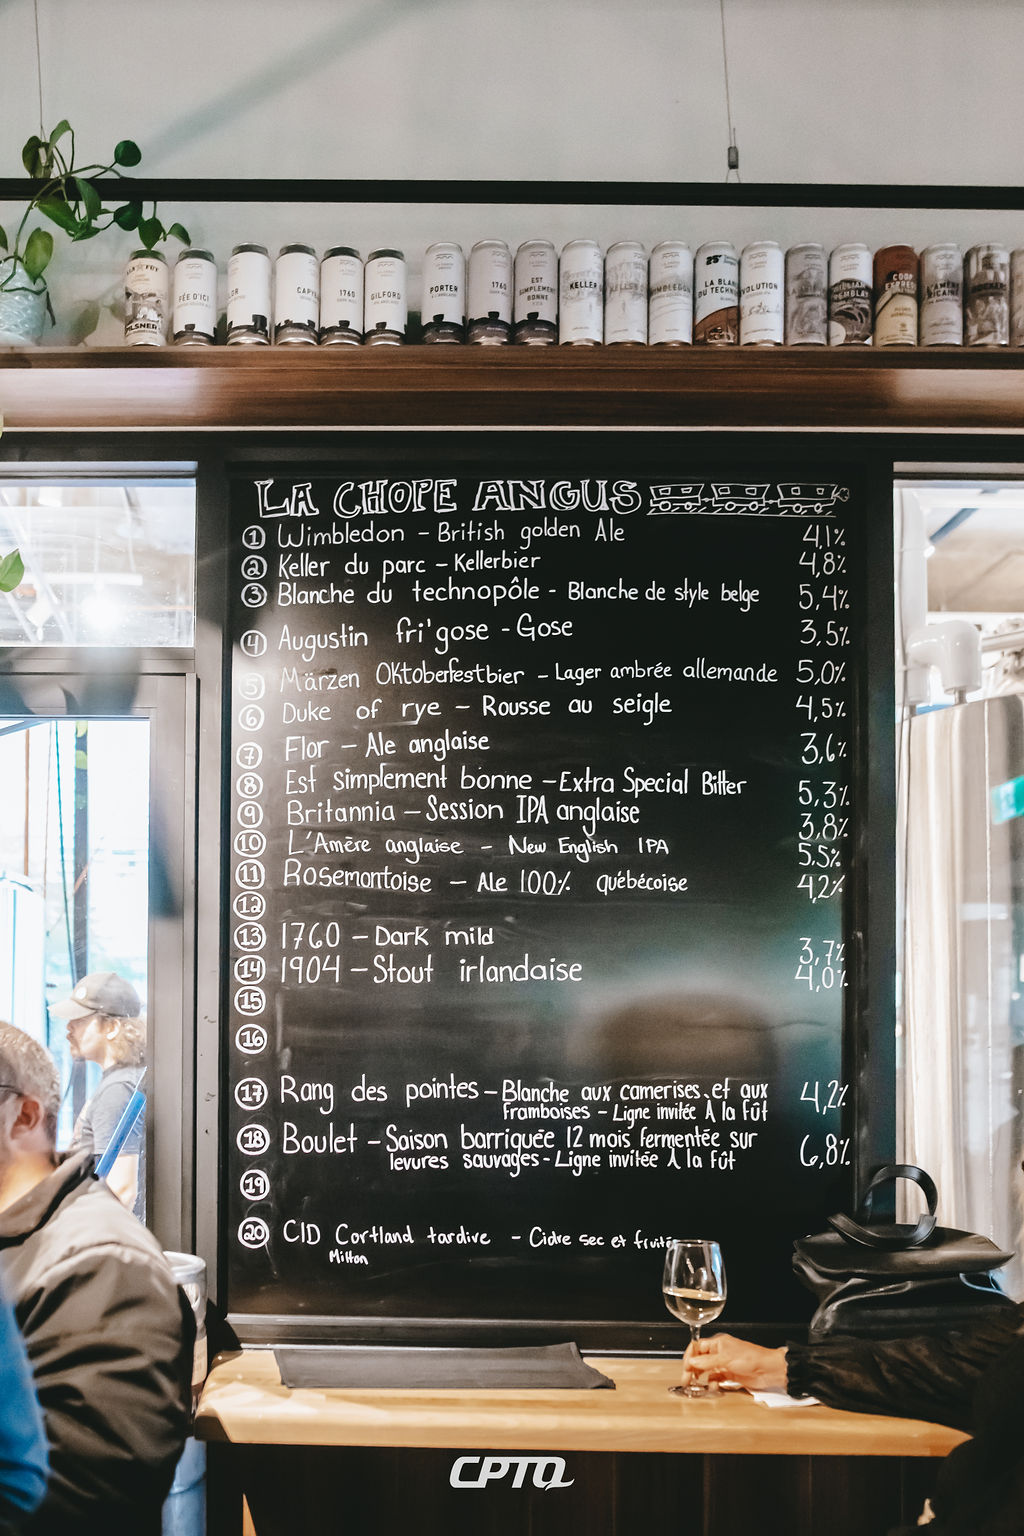 PILSNER
FÉE D'ICI
PORTER
1760
GILFORD
PORTER
1760
EST
SIMPLEMENT
BONNE
KELLER
25
LA BLAN
DU TECHN
VOLUTION
TREMBLAY
COOP
L'AMÈRE
RICAINE
LA CHOPE ANGUS
1 Wimbledon - British golden Ale 4,1%
2 Keller du parc - Kellerbier 4,8%
3 Blanche du technopôle - Blanche de style belge 5,4%
4 Augustin fri'gose - Gose 3,5%
5 Märzen Oktoberfestbier - Lager ambrée allemande 5,0%
6 Duke of rye - Rousse au seigle 4,5%
7 Flor - Ale anglaise 3,6%
8 Est simplement bonne - Extra Special Bitter 5,3%
9 Britannia - Session IPA anglaise 3,8%
10 L'Amère anglaise - New English IPA 5,5%
11 Rosemontoise - Ale 100% québécoise 4,2%
12
13 1760 - Dark mild 3,7%
14 1904 - Stout irlandaise 4,0%
15
16
17 Rang des pointes - Blanche aux camerises et aux 4,2%
framboises - Ligne invitée À la fût
18 Boulet - Saison barriquée 12 mois fermentée sur 6,8%
levures sauvages - Ligne invitée À la fût
19
20 CID Cortland tardive - Cidre sec et fruité
Milton
CPTQ